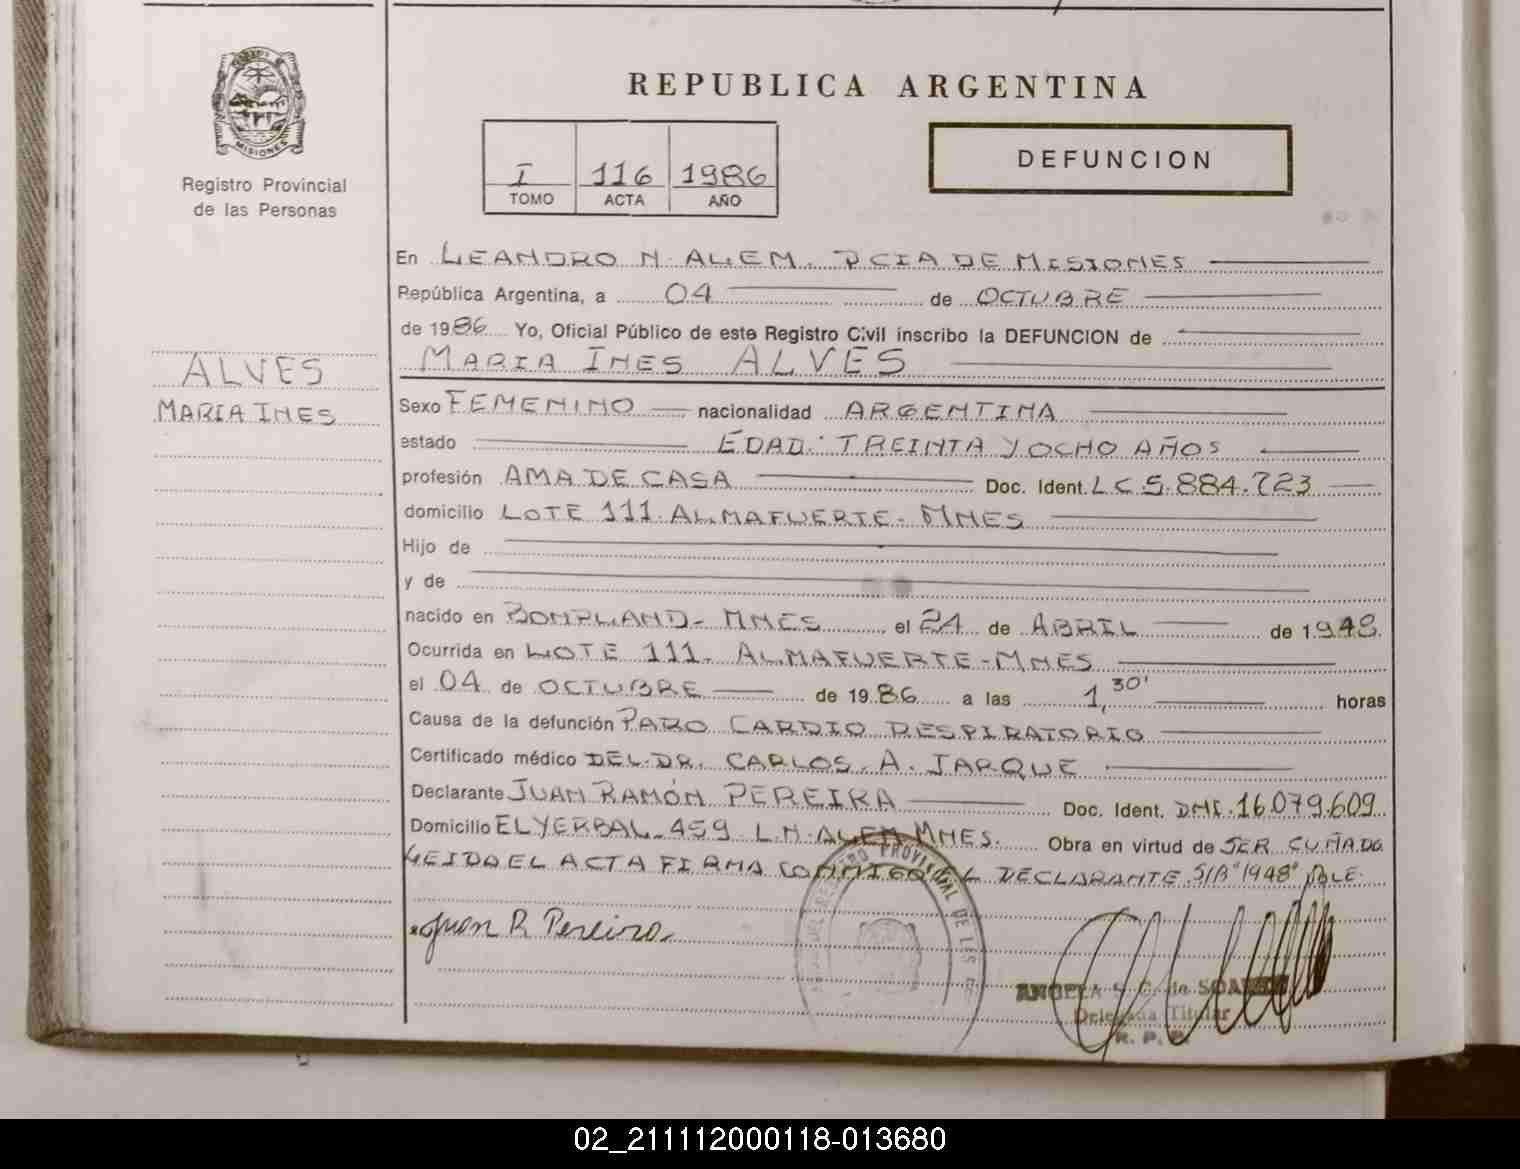 MISIONES
Registro Provincial
de las Personas
ALVES
MARIA INES
REPUBLICA ARGENTINA
I 116 1986
TOMO ACTA AÑO
DEFUNCION
En LEANDRO N. ALEM. PCIA DE MISIONES
República Argentina, a 04 de OCTUBRE
de 1986 Yo, Oficial Público de este Registro Civil inscribo la DEFUNCION de
MARIA INES ALVES
Sexo FEMENINO nacionalidad ARGENTINA
estado EDAD: TREINTA Y OCHO AÑOS
profesión AMA DE CASA Doc. Ident. L C 5.884.723
domicilio LOTE 111. ALMAFUERTE- MNES
Hijo de
y de
nacido en BONPLAND- MNES el 24 de ABRIL de 1.948.
Ocurrida en LOTE 111. ALMAFUERTE-MNES
el 04 de OCTUBRE de 1986 a las 1,30' horas
Causa de la defunción PARO CARDIO RESPIRATORIO
Certificado médico DEL DR. CARLOS. A. JARQUE
Declarante JUAN RAMÓN PEREIRA Doc. Ident. DNI.16.079.609
Domicilio EL YERBAL 459 L.N. ALEM MNES. Obra en virtud de SER CUÑADO
LEIDA EL ACTA FIRMA CONMIGO EL DECLARANTE S/B "1948" VALE.
Juan R Pereira
REGISTRO PROVINCIAL DE LAS
ANGELA S. C. de SOAREZ
Delegada Titular
R. P. P.
02_211112000118-013680